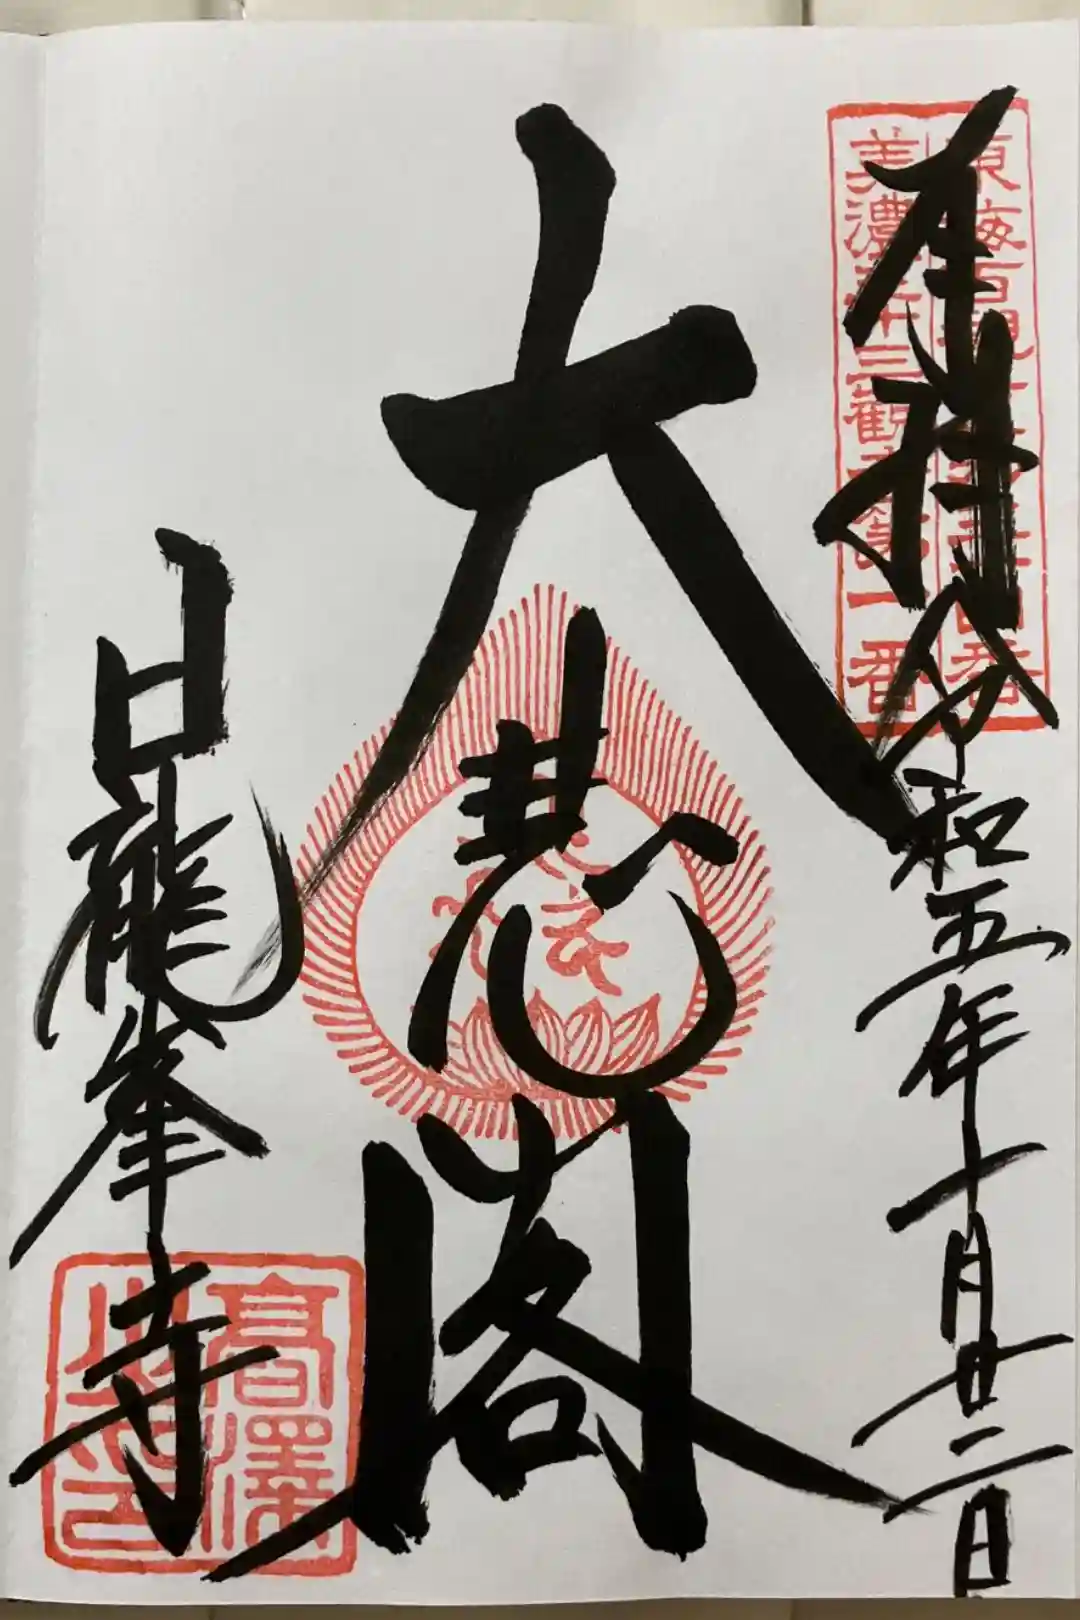 奉拝
令和五年十月廿二日
美濃三十三観音第一番
大悲閣
日龍峯寺
高澤